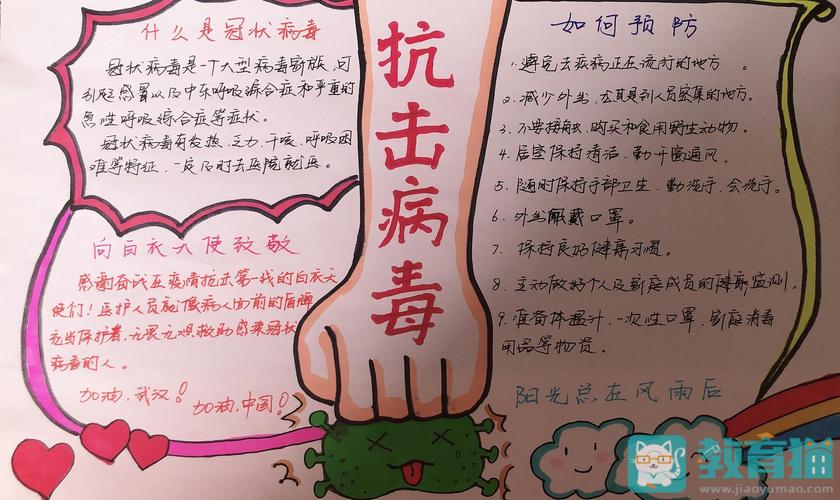 什么是冠状病毒
冠状病毒是一个大型病毒家族,可
引起感冒以及中东呼吸综合症和严重的
急性呼吸综合症等症状。
冠状病毒有发热、乏力、干咳、呼吸困
难等特征,一定及时去医院就医。
向白衣天使致敬
感谢奋战在疫情抗击第一线的白衣天
使们!医护人员就像病人面前的盾牌
充当保护者,无畏无惧救助感染冠状
病毒的人。
加油,武汉!
加油,中国!
抗击病毒
如何预防
1.避免去疾病正在流行的地方。
2.减少外出,尤其是别人员密集的地方。
3.不要接触、购买和食用野生动物。
4.居室保持清洁,勤开窗通风。
5.随时保持手部卫生,勤洗手,会洗手。
6.外出佩戴口罩。
7.保持良好健康习惯。
8.主动做好个人及家庭成员的健康监测。
9.准备体温计、一次性口罩、家庭消毒
用品等物资。
阳光总在风雨后
教育猫
www.jiaoyumao.com